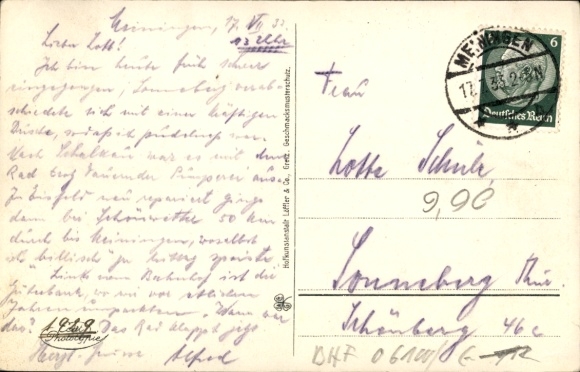 Meiningen, 17. VII 33.
12 Uhr
Lieber Lott!
Ich bin heute früh schon
eingegangen, Sonneberg verab-
schiedete sich mit einer kräftigen
Dusche, sodaß ich pudelnaß war
Nach Schalkau war es mit dem
Rad trotz dauernder Pumperei aus.
In Eisfeld neu repariert gings
dann bei Schönwetter 50 km
durch bis Meiningen, woselbst
ich
Links vom Bahnhof ist die
wo wir vor etlichen
Jahren "Wann war
das?" Das Rad klappt jetzt
Herzl. Grüsse Alfred
Echte
Photographie
Hofkunstanstalt Löffler & Co., Greiz. Geschmacksmusterschutz.
MEININGEN
17. 33. 2-3 N
6
Deutsches Reich
Frau
Lotte Schulz
9,90
Sonneberg Thür.
Schönberg 46c
BHF 06100/